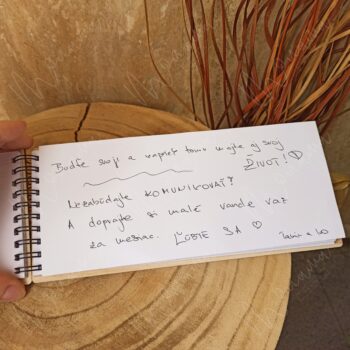 Buďte svoji a napriek tomu majte aj svoj
ŽIVOT!
Nezabúdajte KOMUNIKOVAŤ!
A doprajte si malé rande raz
za mesiac. ĽÚBTE SA